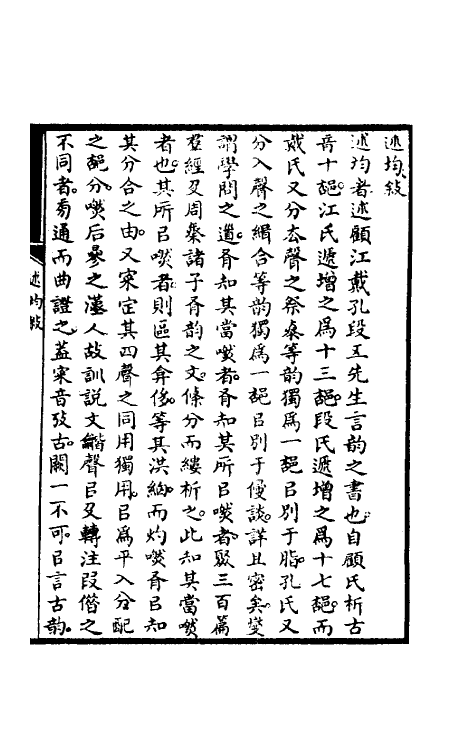 述均敘
述均者述顧江戴孔段五先生言韵之書也自顧氏析古
音十部江氏遞增之爲十三部段氏遞增之爲十七部而
戴氏又分去聲之祭泰等韵獨爲一部㠯別于脂孔氏又
分入聲之緝合等韵獨爲一部㠯別于侵談詳且密矣燮
謂學問之道有知其當然者有知其所㠯然者取三百篇
羣經及周秦諸子有韵之文條分而縷析之此知其當然
者也其所㠯然者則區其弇侈等其洪細而灼然有㠯知
其分合之由又案定其四聲之同用獨用㠯爲平入分配
之部分然后參之漢人故訓説文龤聲㠯及轉注叚借之
不同者旁通而曲證之蓋案音攷古闕一不可㠯言古韵
述均敘